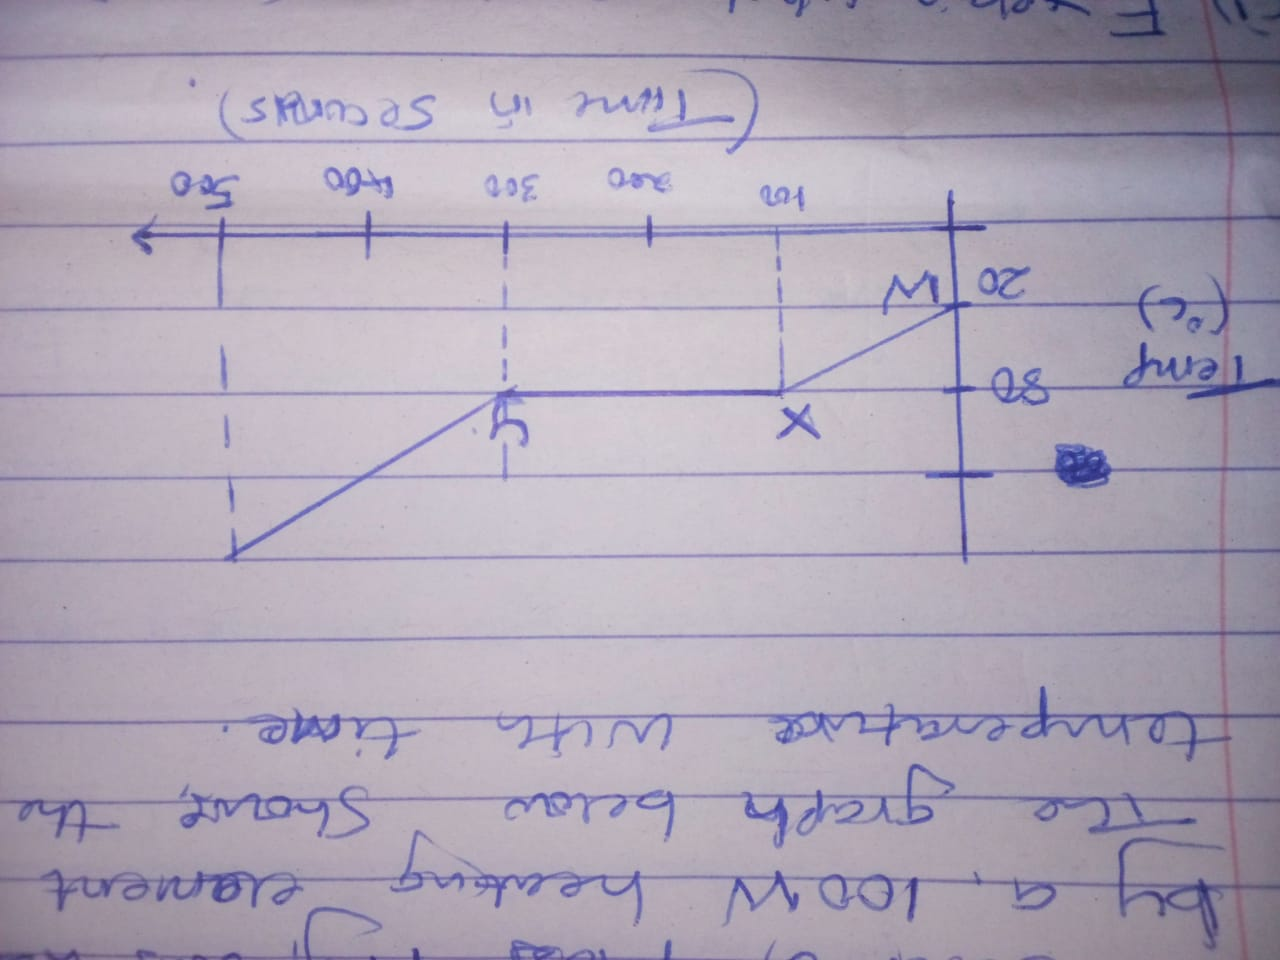 by a 100W heating element
The graph below shows, the
temperature with time.
Temp
(°C)
80
20
X
y
W
100 200 300 400 500
(Time in Seconds)